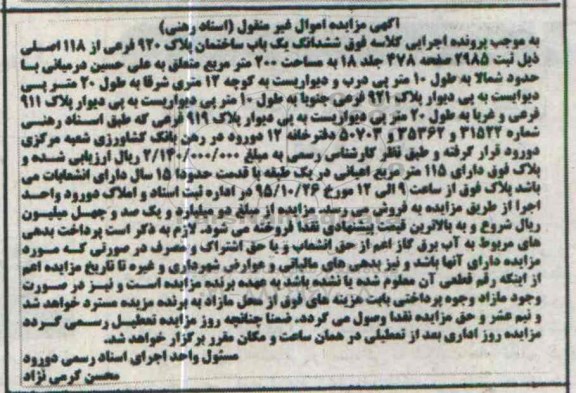 آگهی مزایده اموال غیر منقول (اسناد رهنی)
به موجب پرونده اجرایی کلاسه فوق ششدانگ یک باب ساختمان پلاک ۹۲۰ فرعی از ۱۱۸ اصلی
ذیل ثبت ۲۹۸۵ صفحه ۴۷۸ جلد ۱۸ به مساحت ۲۰۰ متر مربع متعلق به علی حسین درمیانی با
حدود شمالا به طول ۱۰ متر پی درب و دیواریست به کوچه ۱۲ متری شرقا به طول ۲۰ متر پی
دیوایست به پی دیوار پلاک ۹۲۱ فرعی جنوبا به طول ۱۰ متر پی دیواریست به پی دیوار پلاک ۹۱۱
فرعی و غربا به طول ۲۰ متر پی دیواریست به پی دیوار پلاک ۹۱۹ فرعی که طبق اسناد رهنی
شماره ۳۱۵۲۲ و ۳۵۳۶۲ و ۵۰۷۰۳ دفترخانه ۱۲ دورود در رهن بانک کشاورزی شعبه مرکزی
دورود قرار گرفته و طبق نظر کارشناس رسمی به مبلغ ۲/۱۴۰/۰۰۰/۰۰۰ ریال ارزیابی شده و
پلاک فوق دارای ۱۱۵ متر مربع اعیانی در یک طبقه با قدمت حدودا ۱۵ سال دارای انشعابات می
باشد پلاک فوق از ساعت ۹ الی ۱۲ مورخ ۹۵/۱۰/۲۶ در اداره ثبت اسناد و املاک دورود واحد
اجرا از طریق مزایده به فروش می رسد. مزایده از مبلغ دو میلیارد و یک صد و چهل میلیون
ریال شروع و به بالاترین قیمت پیشنهادی نقدا فروخته می شود. لازم به ذکر است پرداخت بدهی
های مربوط به آب برق گاز اعم از حق انشعاب و یا حق اشتراک و مصرف در صورتی که مورد
مزایده دارای آنها باشد و نیز بدهی های مالیاتی و عوارض شهرداری و غیره تا تاریخ مزایده اعم
از اینکه رقم قطعی آن معلوم شده یا نشده باشد به عهده برنده مزایده است و نیز در صورت
وجود مازاد وجوه پرداختی بابت هزینه های فوق از محل مازاد به برنده مزیده مسترد خواهد شد
و نیم عشر و حق مزایده نقدا وصول می گردد. ضمنا چنانچه روز مزایده تعطیل رسمی گردد
مزایده روز اداری بعد از تعطیلی در همان ساعت و مکان مقرر برگزار خواهد شد.
مسئول واحد اجرای اسناد رسمی دورود
محسن کرمی نژاد